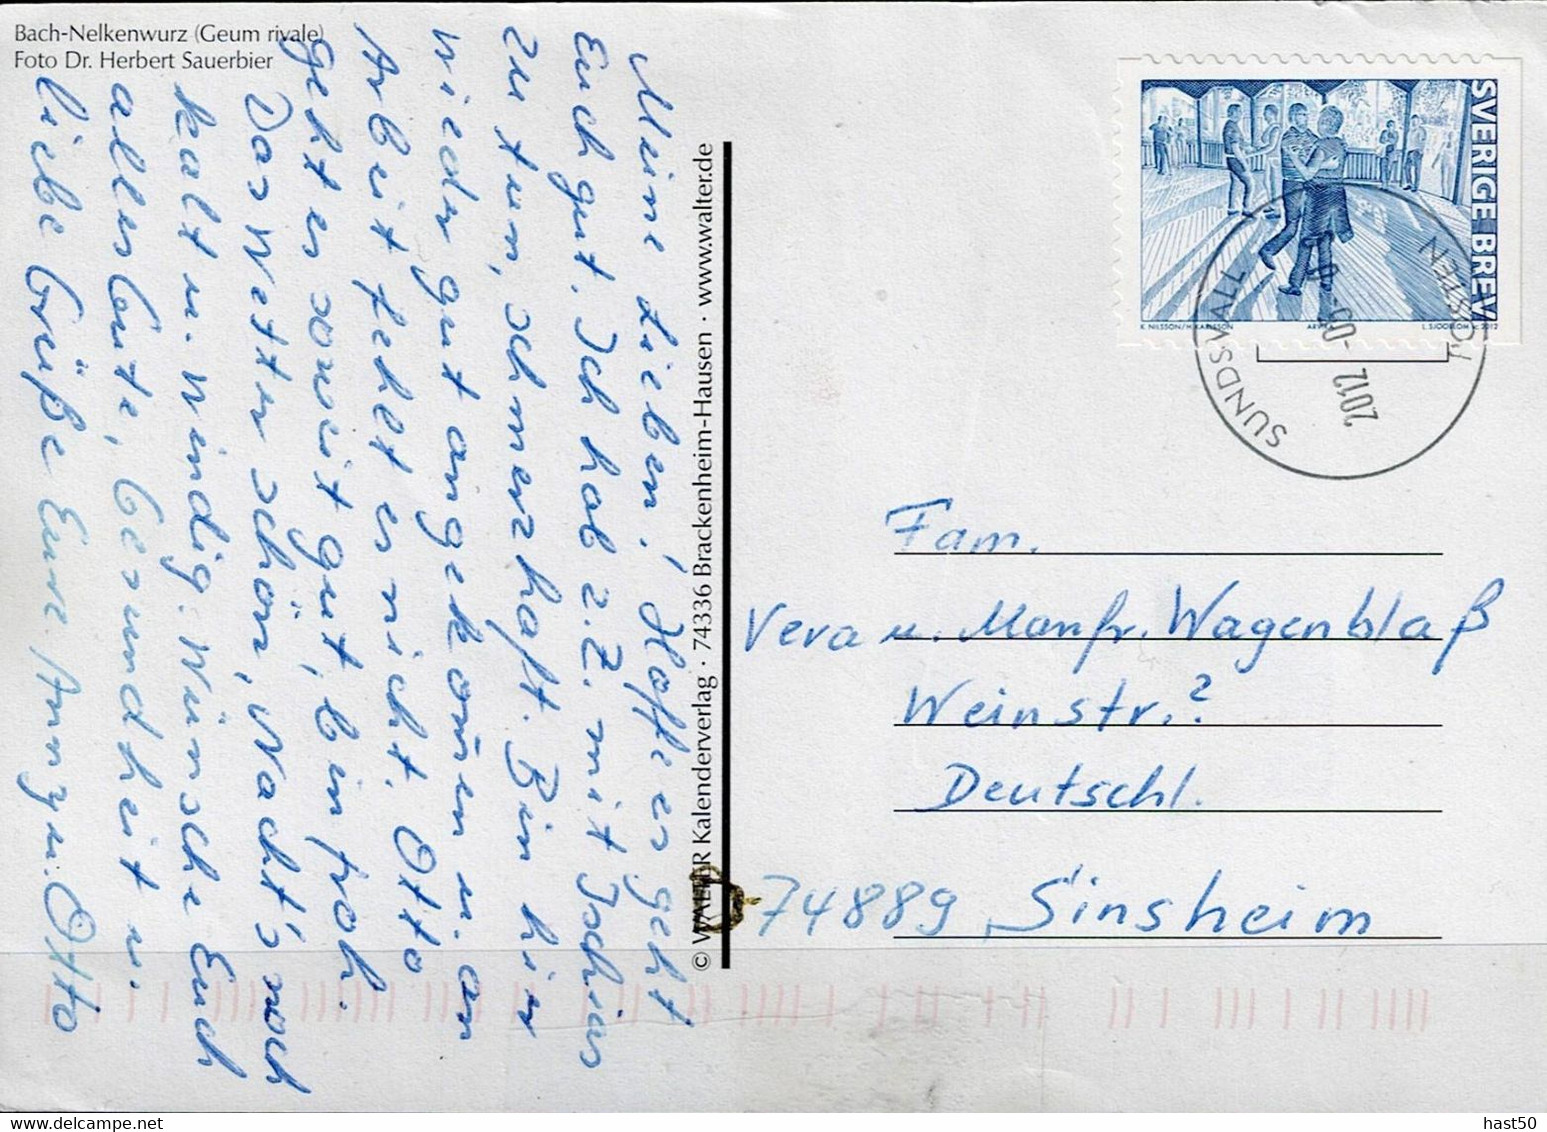 Bach-Nelkenwurz (Geum rivale)
Foto Dr. Herbert Sauerbier
Meine Lieben! Hoffe es geht
Euch gut. Ich hab z.Z. mit Ischias
zu tun, schmerzhaft. Bin hier
wieder gut angekom̄en u. an
Arbeit fehlt es nicht. Otto
geht es soweit gut, bin froh.
Das Wetter schön, Nacht's noch
kalt u. windig. Wünsche Euch
alles Gute, Gesundheit u.
liebe Grüße Eure Anny u. Otto
© WALTER Kalenderverlag · 74336 Brackenheim-Hausen · www.walter.de
SVERIGE BREV
K. NILSSON/H. KARLSSON
L. SJÖÖBLOM sc 2012
SUNDSVALL
POSTEN
2012
Fam.
Vera u. Manfr. Wagenblaß
Weinstr. ?
Deutschl.
74889 Sinsheim
hast50